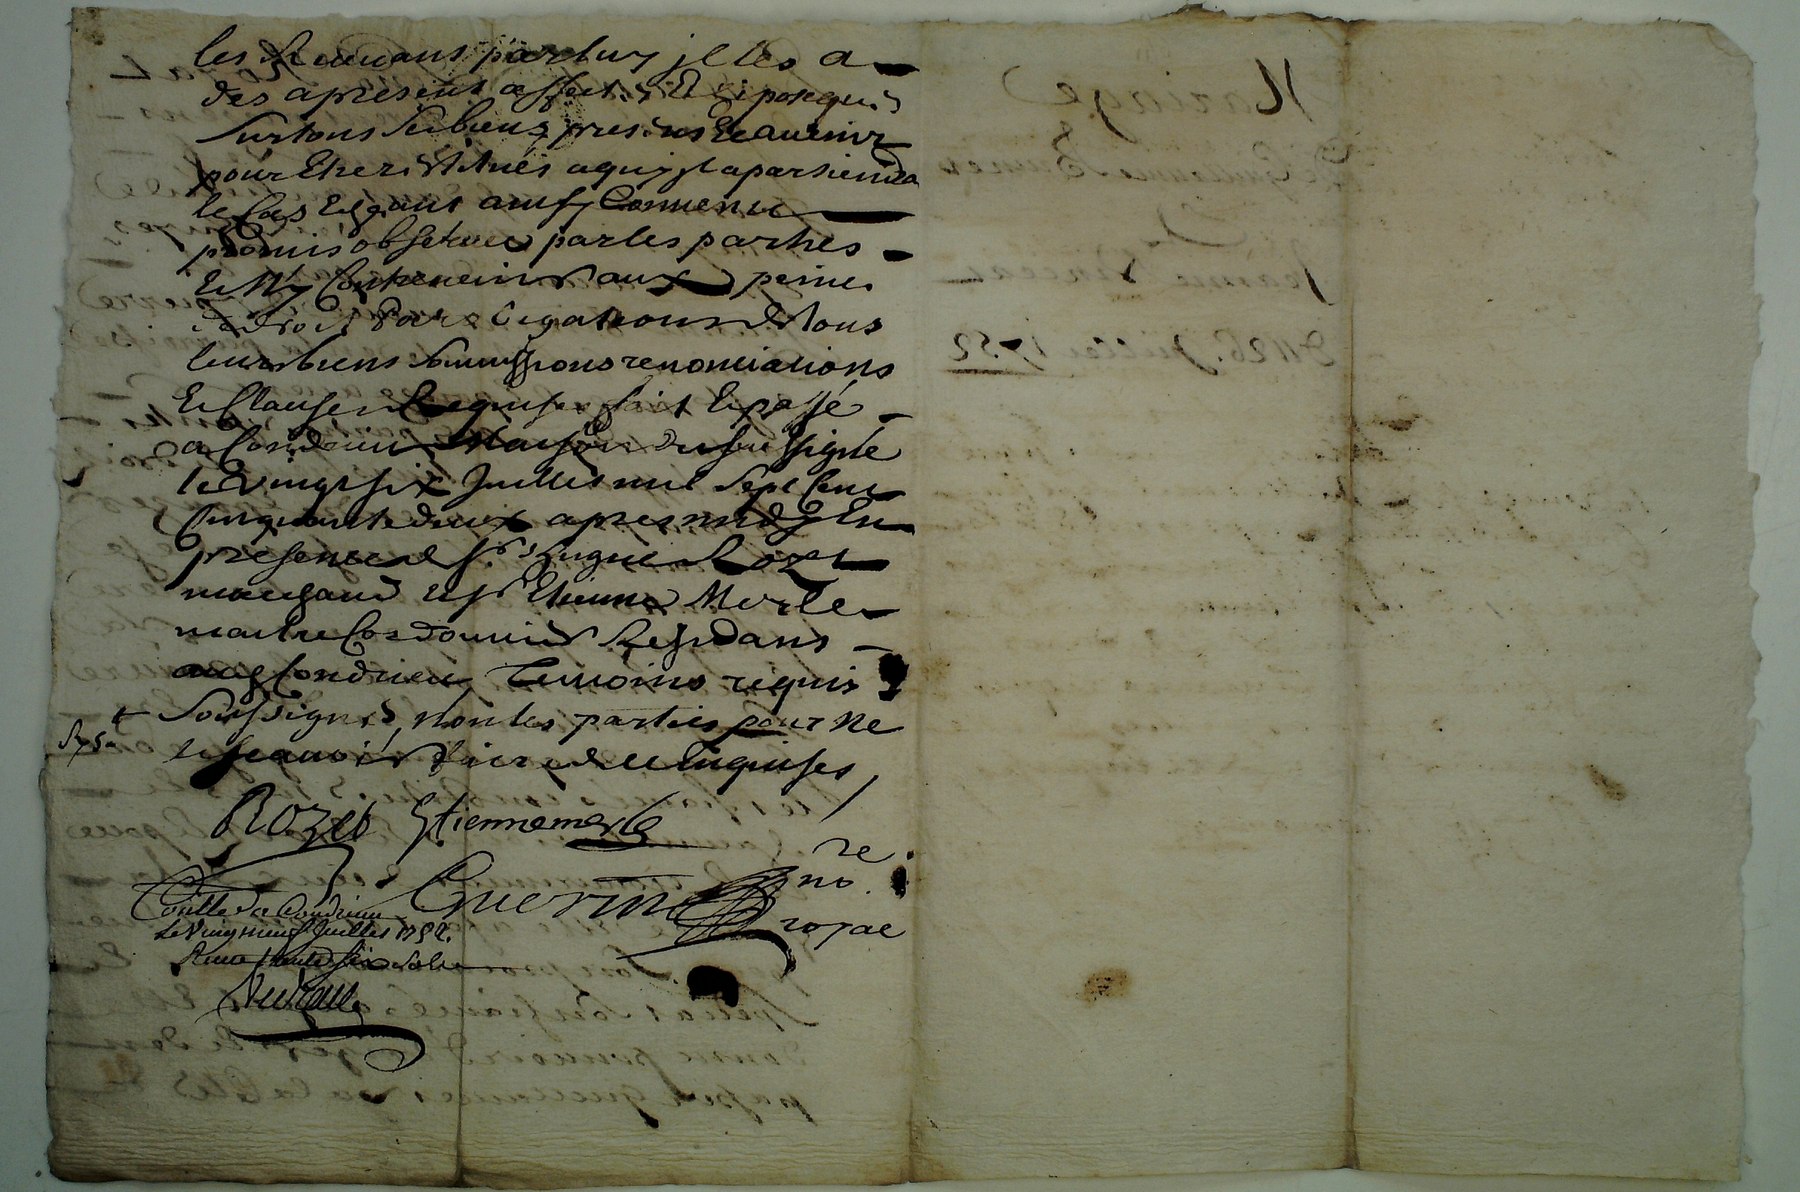 les Recevans par luy il les a
des apresent affectés & ipotequés
sur tous ses biens presens & avenir
pour Etre restitués a qui il apartiendra
le Cas Echeant ainsy Convenu
promis observer par les parties
& ny Contrevenir aux peines
de droit Par obligations de tous
leurs biens soumissions renonciations
& Clauses Requises fait & passé
a Condrieu Maison du soussigné
le vingt six Juillet mil sept Cent
Cinquante deux apres midy En
presence de sr. hugue Rozet
marchand & sr Etienne Merle
maitre Cordonnier Residans
aud Condrieu Temoins requis
& soussignés, non les parties pour ne
le sçavoir faire de ce Enquises
Rozet Etiennemerle
Guerin
re
no
royal
Conllé a Condrieu
Le vingt neuf Juillet 1752.
Reçu trente six sols
Mariage
De Guillaume
&
Jeanne
Du 26. Juillet 1752